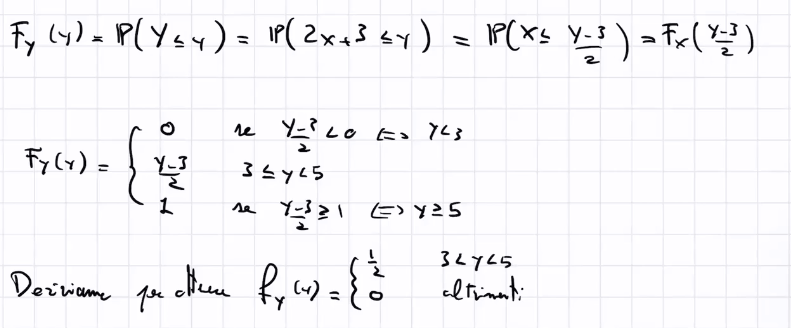 F_Y (y) = P(Y ≤ y) = P(2X+3 ≤ y) = P(X ≤ \frac{y-3}{2}) = F_X(\frac{y-3}{2})
F_Y(y) = { 0 se \frac{y-3}{2} < 0 ⟺ y < 3
\frac{y-3}{2} 3 ≤ y < 5
1 se \frac{y-3}{2} ≥ 1 ⟺ y ≥ 5
Deriviamo per ottenere f_Y (y) = { \frac{1}{2} 3 < y < 5
0 altrimenti